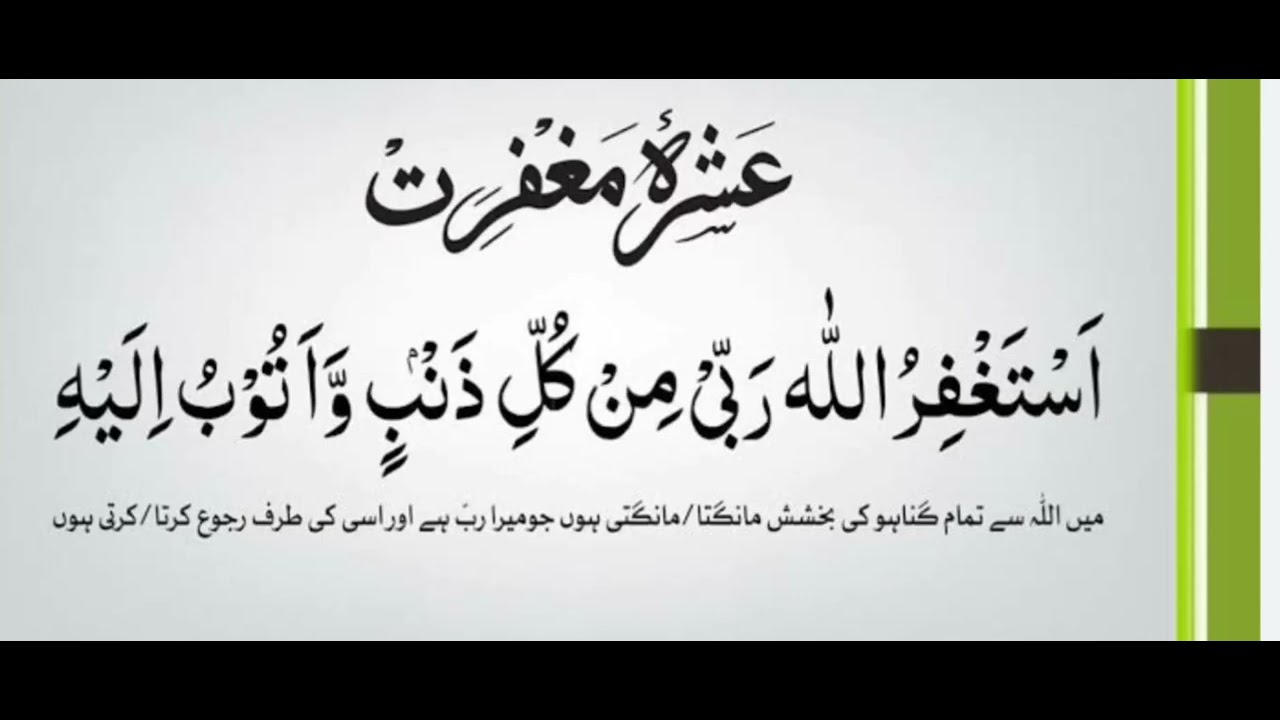 عَشْرِۂ مَغْفِرِتْ
اَسْتَغْفِرُ اللّٰه رَبِّىْ مِنْ كُلِّ ذَنْۢبٍ وَّاَ تُوْبُ اِلَيْهِ
میں اللّٰہ سے تمام گناہو کی بخشش مانگتا/مانگتی ہوں جومیرا ربّ ہے اوراسی کی طرف رجوع کرتا/کرتی ہوں